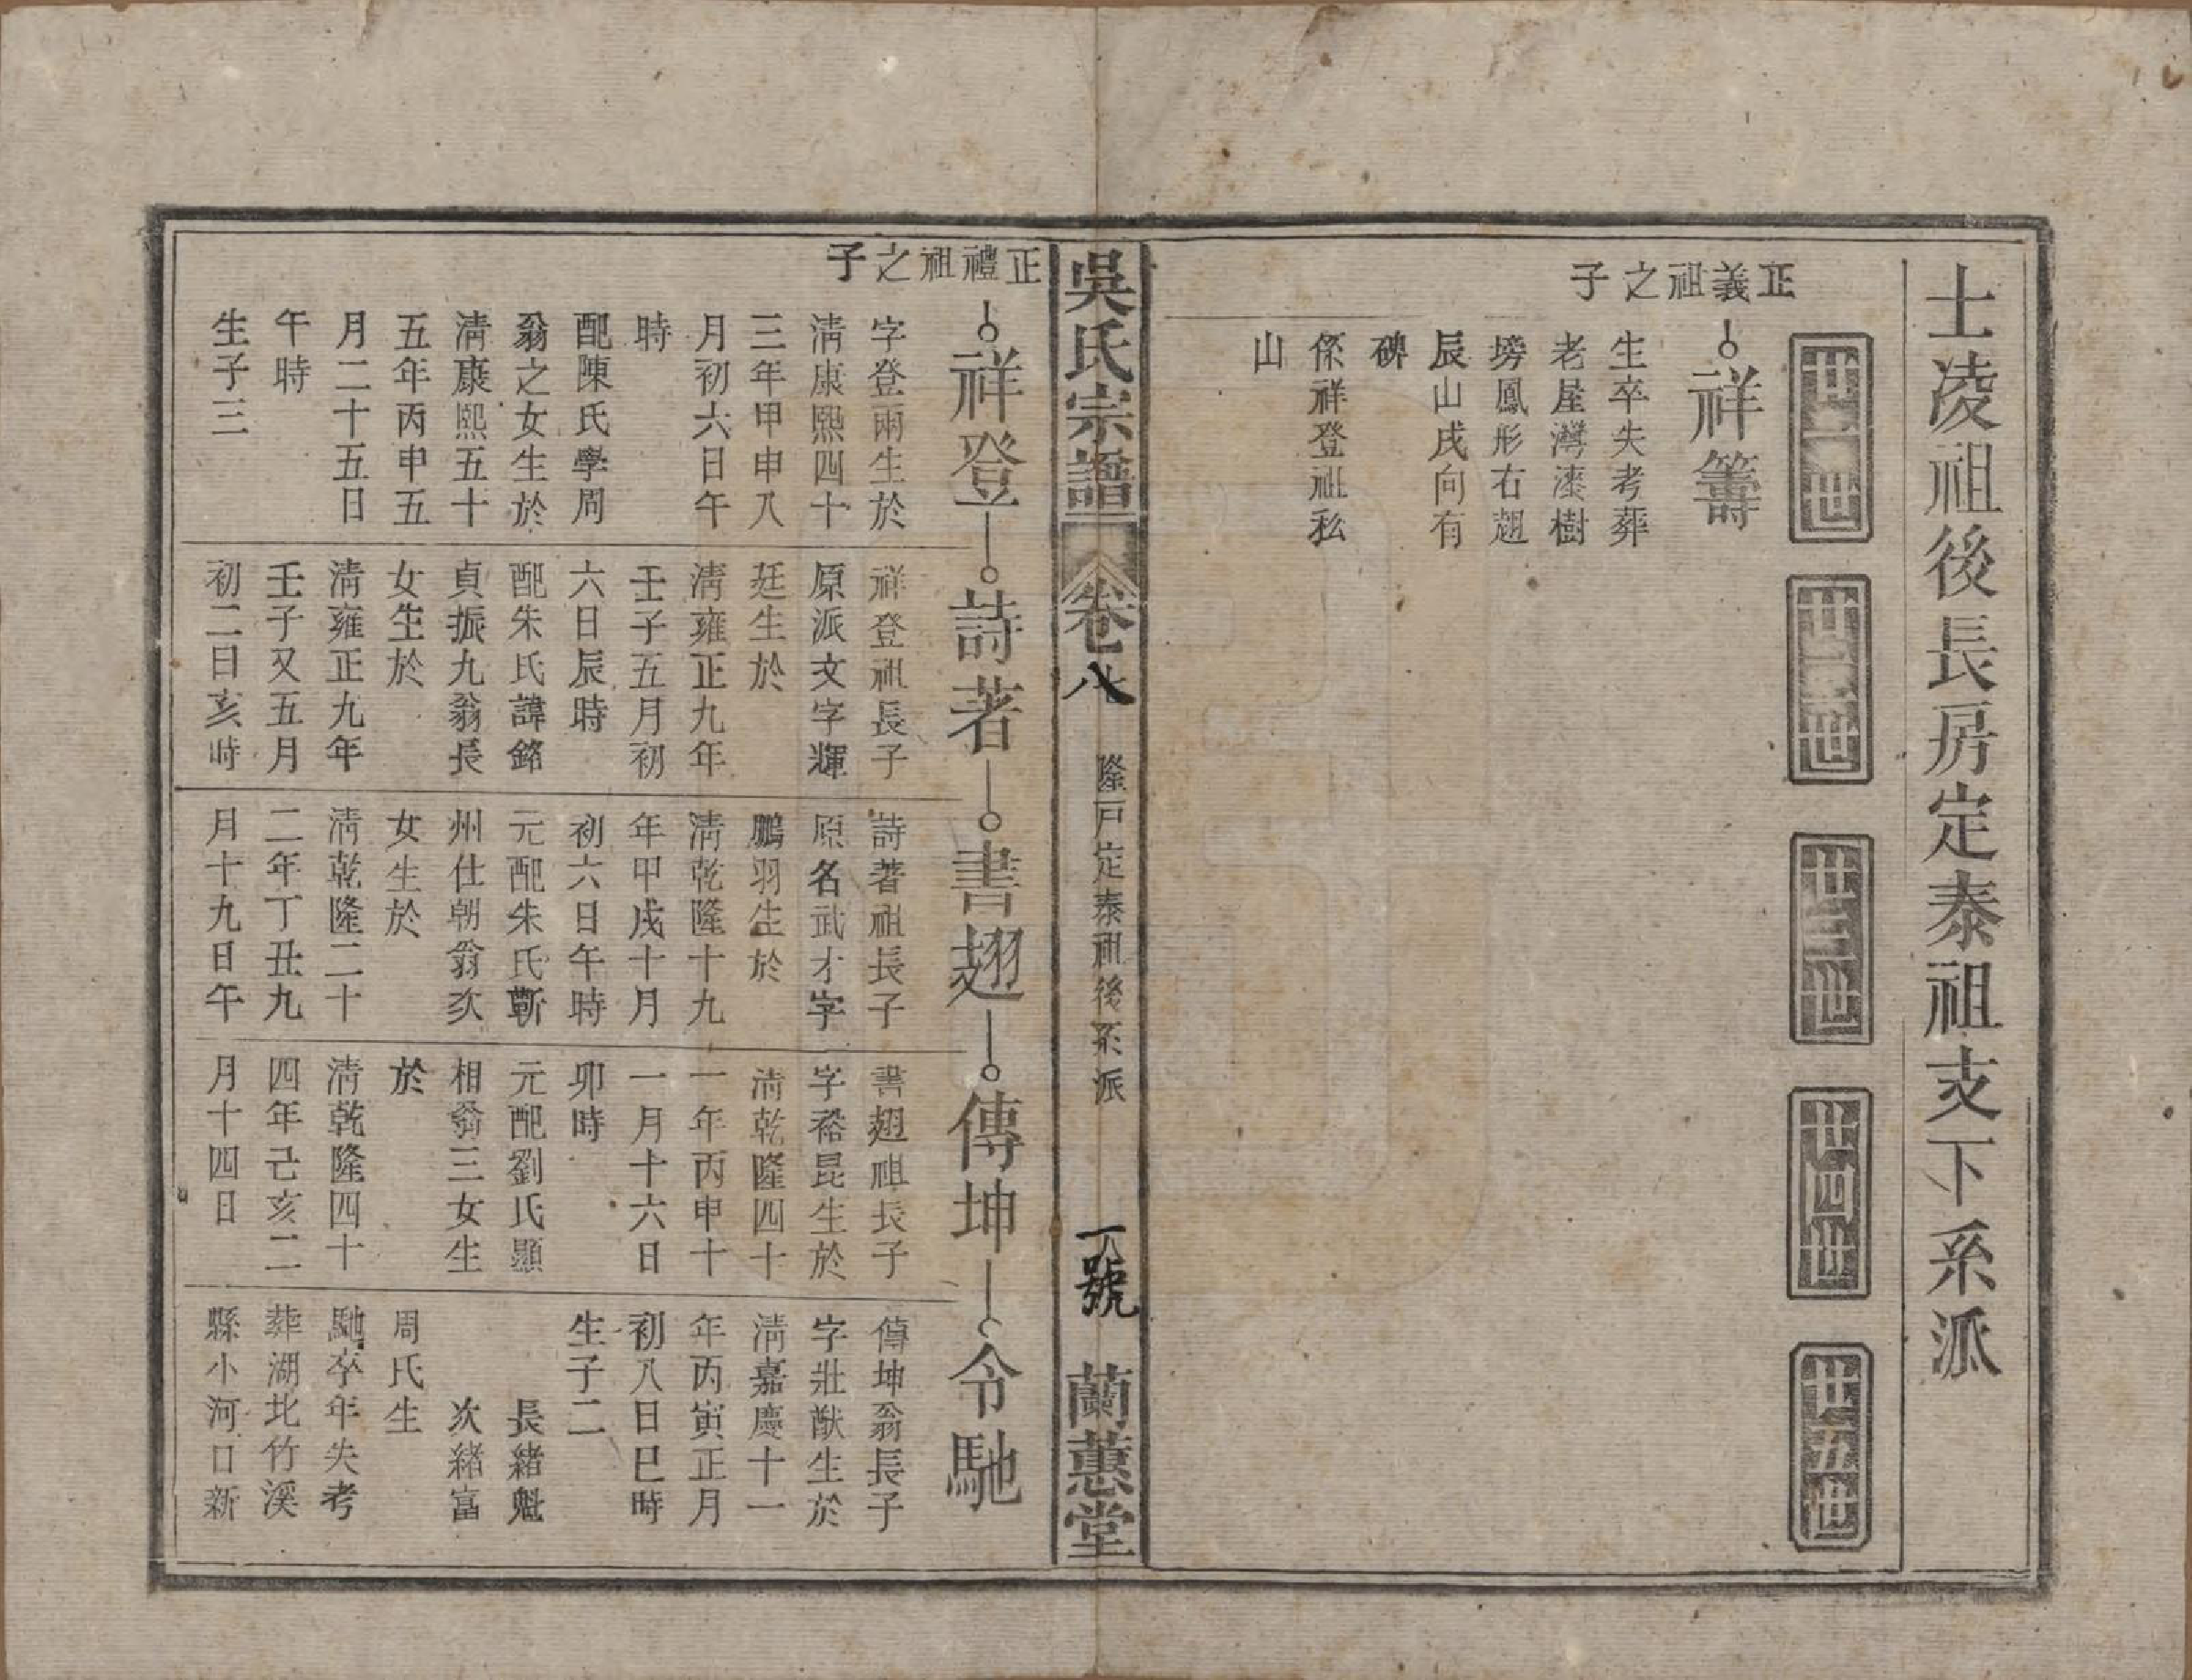 士凌祖後長房定泰祖支下系派
廿一世
廿二世
廿三世
廿四世
廿五世
正義祖之子
祥籌
生卒失考葬
老屋灣漆樹
塝鳳形右翅
辰山戌向有
碑
係祥登祖私
山
吳氏宗譜
卷八
隆戸定泰祖後系派
一號
蘭蕙堂
正禮祖之子
祥登
字登雨生於
清康熙四十
三年甲申八
月初六日午
時
配陳氏學周
翁之女生於
清康熙五十
五年丙申五
月二十五日
午時
生子三
詩著
祥登祖長子
原派文字輝
廷生於
清雍正九年
壬子五月初
六日辰時
配朱氏諱銘
貞振九翁長
女生於
清雍正九年
壬子又五月
初二日亥時
書翅
詩著祖長子
原名武才字
鵬羽生於
清乾隆十九
年甲戌十月
初六日午時
元配朱氏蘄
州仕朝翁次
女生於
清乾隆二十
二年丁丑九
月十九日午
傳坤
書翅祖長子
字裕昆生於
清乾隆四十
一年丙申十
一月十六日
卯時
元配劉氏顯
相翁三女生
於
清乾隆四十
四年己亥二
月十四日
令馳
傳坤翁長子
字壯猷生於
清嘉慶十一
年丙寅正月
初八日巳時
生子二
長緒魁
次緒富
周氏生
馳卒年失考
葬湖北竹溪
縣小河口新